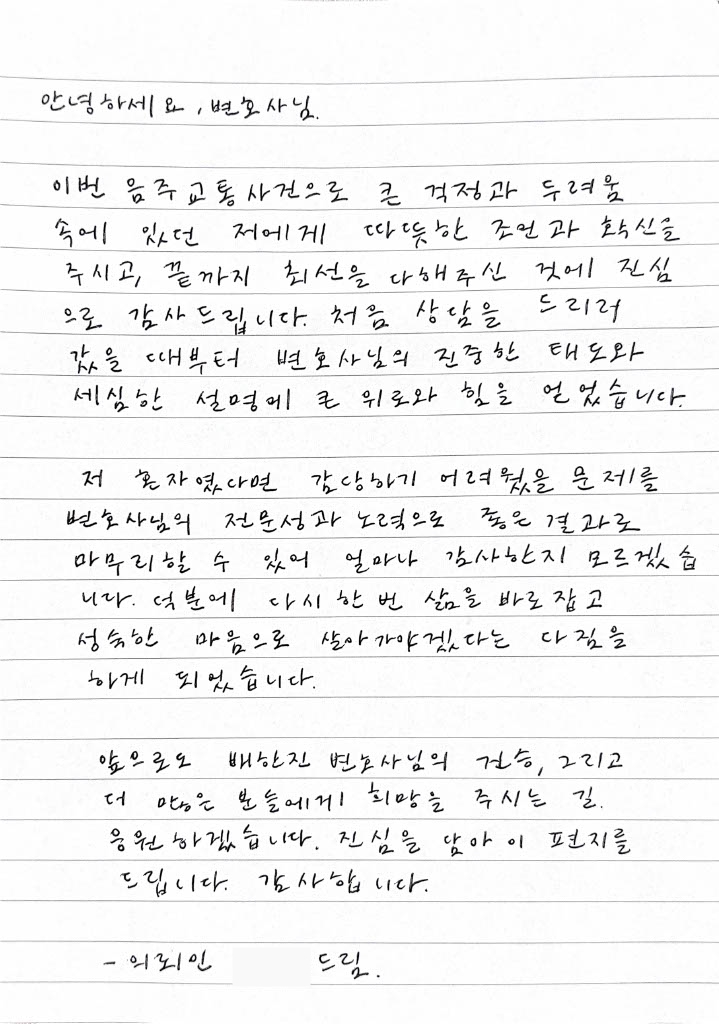 안녕하세요, 변호사님.
이번 음주교통사건으로 큰 걱정과 두려움
속에 있던 저에게 따뜻한 조언과 확신을
주시고, 끝까지 최선을 다해주신 것에 진심
으로 감사드립니다. 처음 상담을 드리러
갔을 때부터 변호사님의 진중한 태도와
세심한 설명에 큰 위로와 힘을 얻었습니다.
저 혼자였다면 감당하기 어려웠을 문제를
변호사님의 전문성과 노력으로 좋은 결과로
마무리할 수 있어 얼마나 감사한지 모르겠습
니다. 덕분에 다시 한 번 삶을 바로잡고
성숙한 마음으로 살아가야겠다는 다짐을
하게 되었습니다.
앞으로도 배한진 변호사님의 건승, 그리고
더 많은 분들에게 희망을 주시는 길.
응원하겠습니다. 진심을 담아 이 편지를
드립니다. 감사합니다.
- 의뢰인 드림.